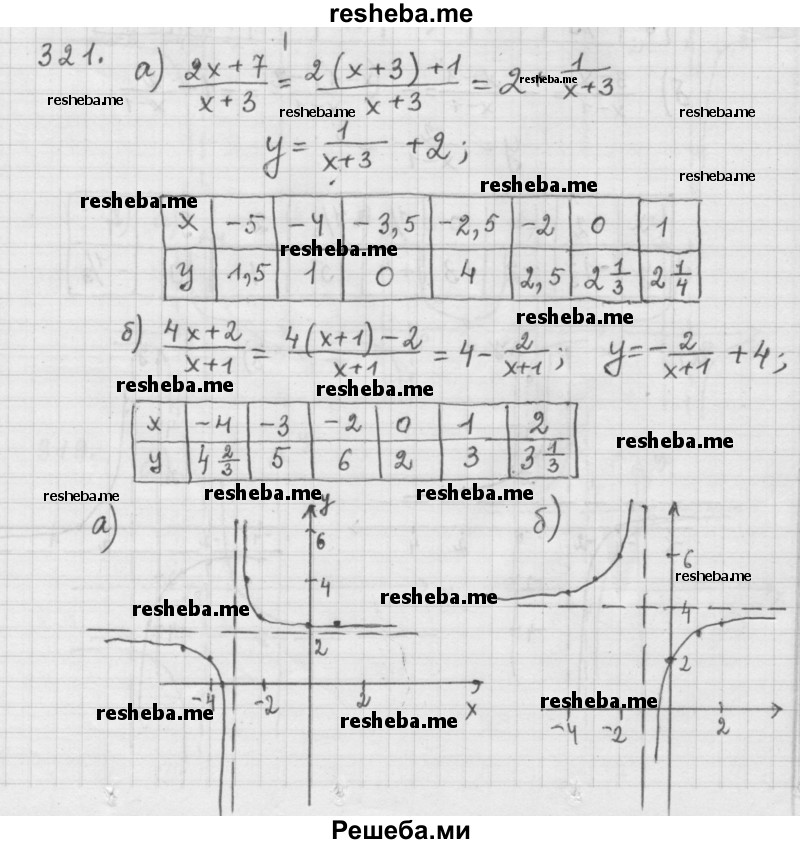 resheba.me
321. а) (2x+7)/(x+3) = (2(x+3)+1)/(x+3) = 2 + 1/(x+3)
resheba.me resheba.me resheba.me resheba.me
y = 1/(x+3) + 2;
resheba.me
resheba.me resheba.me
x -5 -4 -3,5 -2,5 -2 0 1
resheba.me
y 1,5 1 0 4 2,5 2 1/3 2 1/4
resheba.me
б) (4x+2)/(x+1) = (4(x+1)-2)/(x+1) = 4 - 2/(x+1); y = -2/(x+1) + 4;
resheba.me resheba.me
x -4 -3 -2 0 1 2
resheba.me
y 4 2/3 5 6 2 3 3 1/3
resheba.me resheba.me resheba.me
а) y б)
6 6
resheba.me
4
resheba.me resheba.me
4
2 2
-4 -2 2 x
resheba.me resheba.me resheba.me
-4 -2 2
Решеба.ми